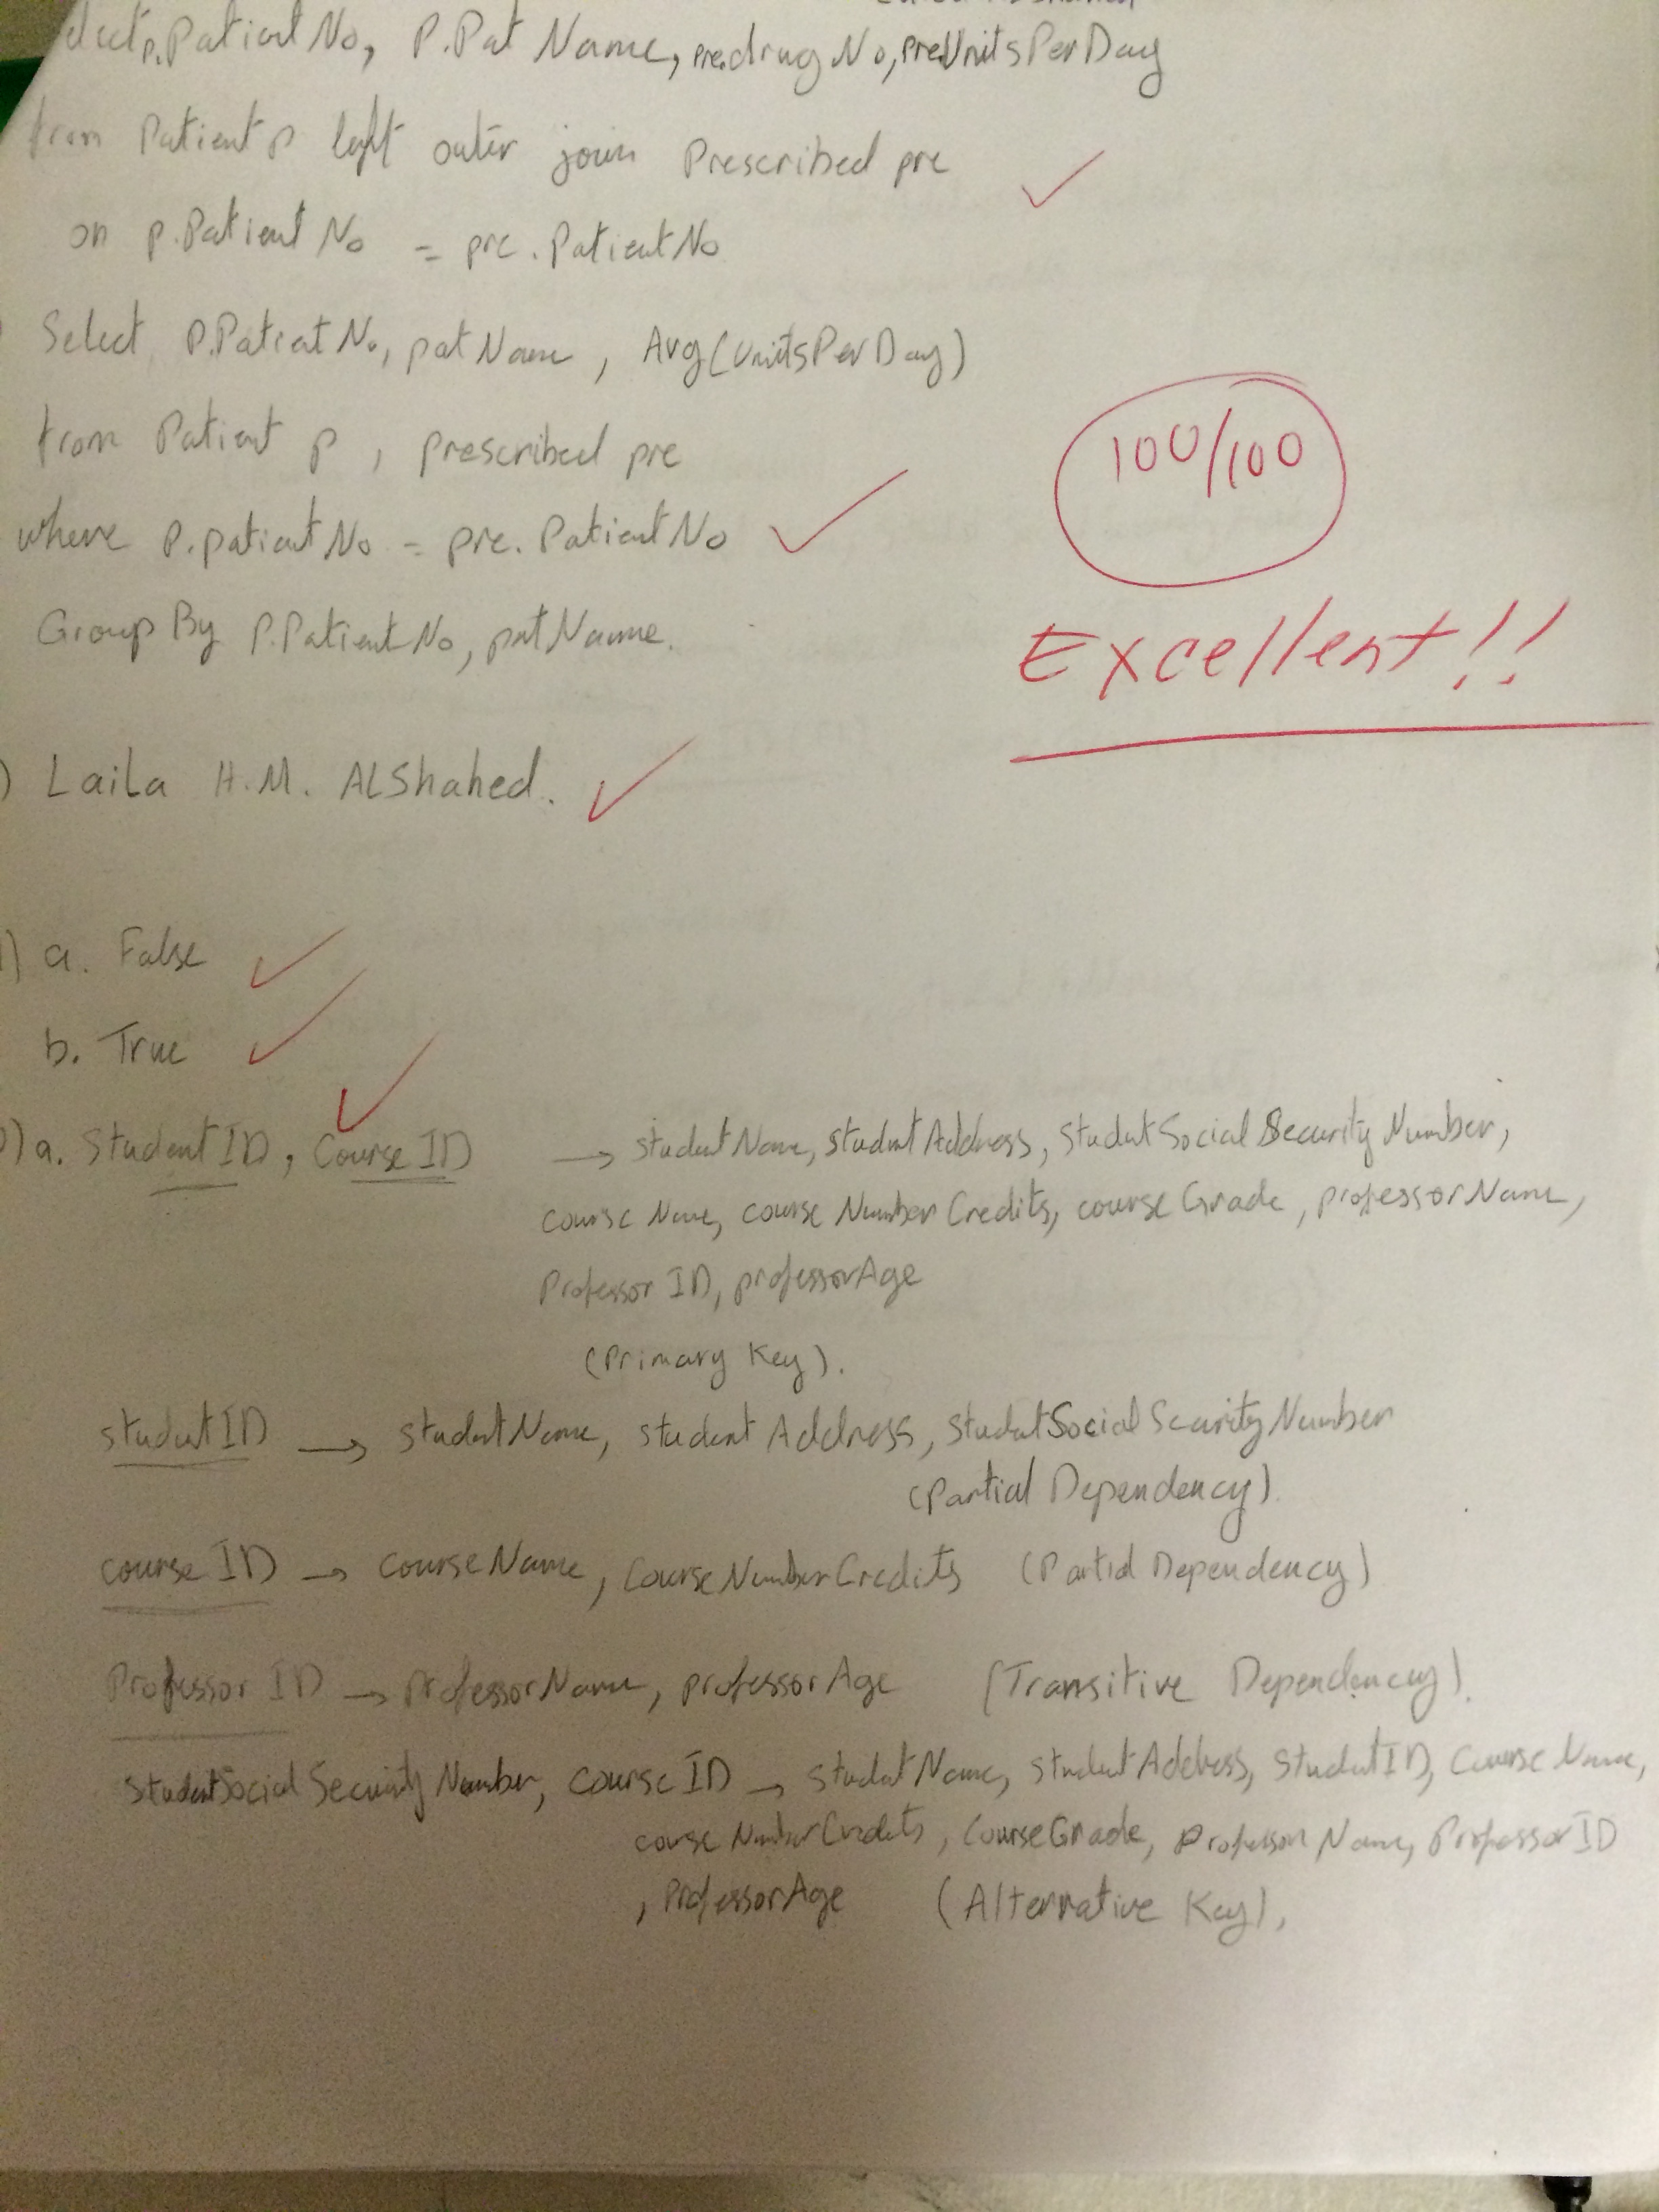 p.Patient No, P.Pat Name, pre.drug No, pre.UnitsPerDay
from Patient p left outer join Prescribed pre
on p.Patient No = pre.Patient No
Select P.Patient No, patName, Avg(UnitsPerDay)
from Patient p, prescribed pre
where P.patient No = pre.Patient No
Group By P.Patient No, patName.
100/100
Excellent!!
) Laila H.M. ALShahed.
) a. False
b. True
) a. Student ID, Course ID → studentName, studentAddress, studentSocial Security Number,
course Name, course Number Credits, course Grade, professor Name,
Professor ID, professorAge
(Primary Key).
studentID → studentName, student Address, studentSocial Security Number
(Partial Dependency).
course ID → Course Name, Course Number Credits (Partial Dependency)
Professor ID → professorName, professor Age (Transitive Dependency).
studentSocial Security Number, course ID → studentName, studentAddress, studentID, Course Name,
course Number Credits, Course Grade, Professor Name, Professor ID
, ProfessorAge (Alternative Key).